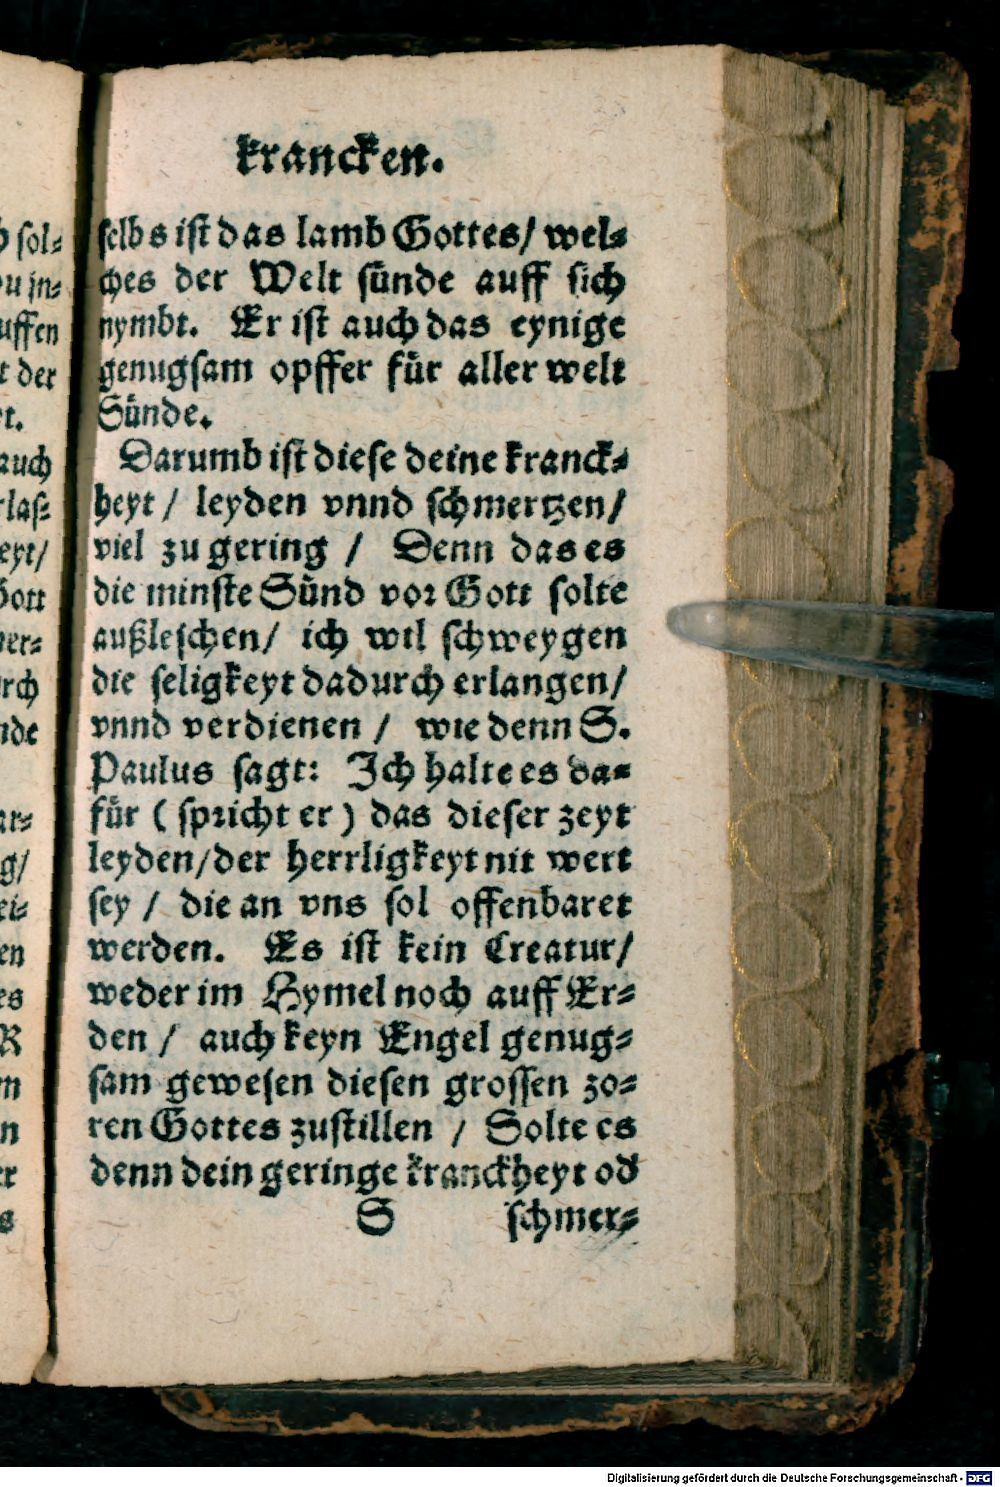 krancken.
selbs ist das lamb Gottes/ wel⸗
ches der Welt sünde auff sich
nymbt. Er ist auch das eynige
genugsam opffer für aller welt
Sünde.
Darumb ist diese deine kranck⸗
heyt / leyden vnnd schmertzen/
viel zu gering / Denn das es
die minste Sünd vor Gott solte
außleschen/ ich wil schweygen
die seligkeyt dadurch erlangen/
vnnd verdienen / wie denn S.
Paulus sagt: Ich halte es da⸗
für ( spricht er ) das dieser zeyt
leyden/der herrligkeyt nit wert
sey / die an vns sol offenbaret
werden. Es ist kein Creatur/
weder im Hymel noch auff Er⸗
den / auch keyn Engel genug⸗
sam gewesen diesen grossen zo⸗
ren Gottes zustillen / Solte es
denn dein geringe kranckheyt od
S schmer⸗
sol⸗
in⸗
uffen
der
t.
auch
las⸗
eyt/
Gott
er⸗
rch
nde
g/
ei⸗
en
es
R
n
Digitalisierung gefördert durch die Deutsche Forschungsgemeinschaft - DFG